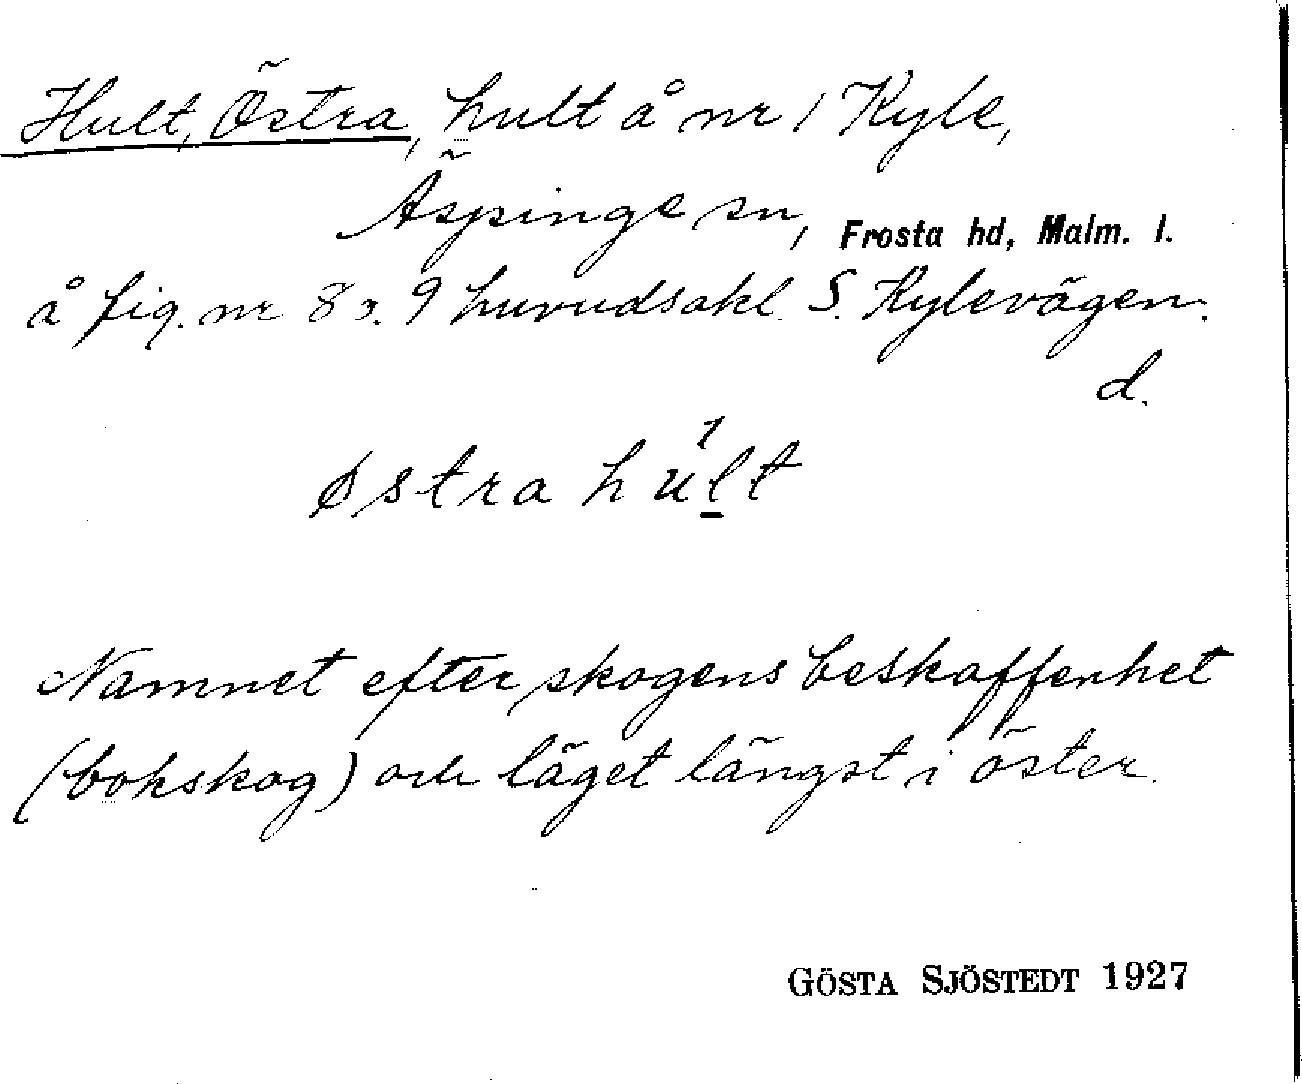 Hult, Östra, hult å nr 1 Kyle,
Äspinge sn, Frosta hd, Malm. l.
å fig. nr 8 o. 9 huvudsakl. S. Kylevägen.
d.
østra hult
Namnet efter skogens beskaffenhet
(bokskog) och läget längst i öster.
GÖSTA SJÖSTEDT 1927